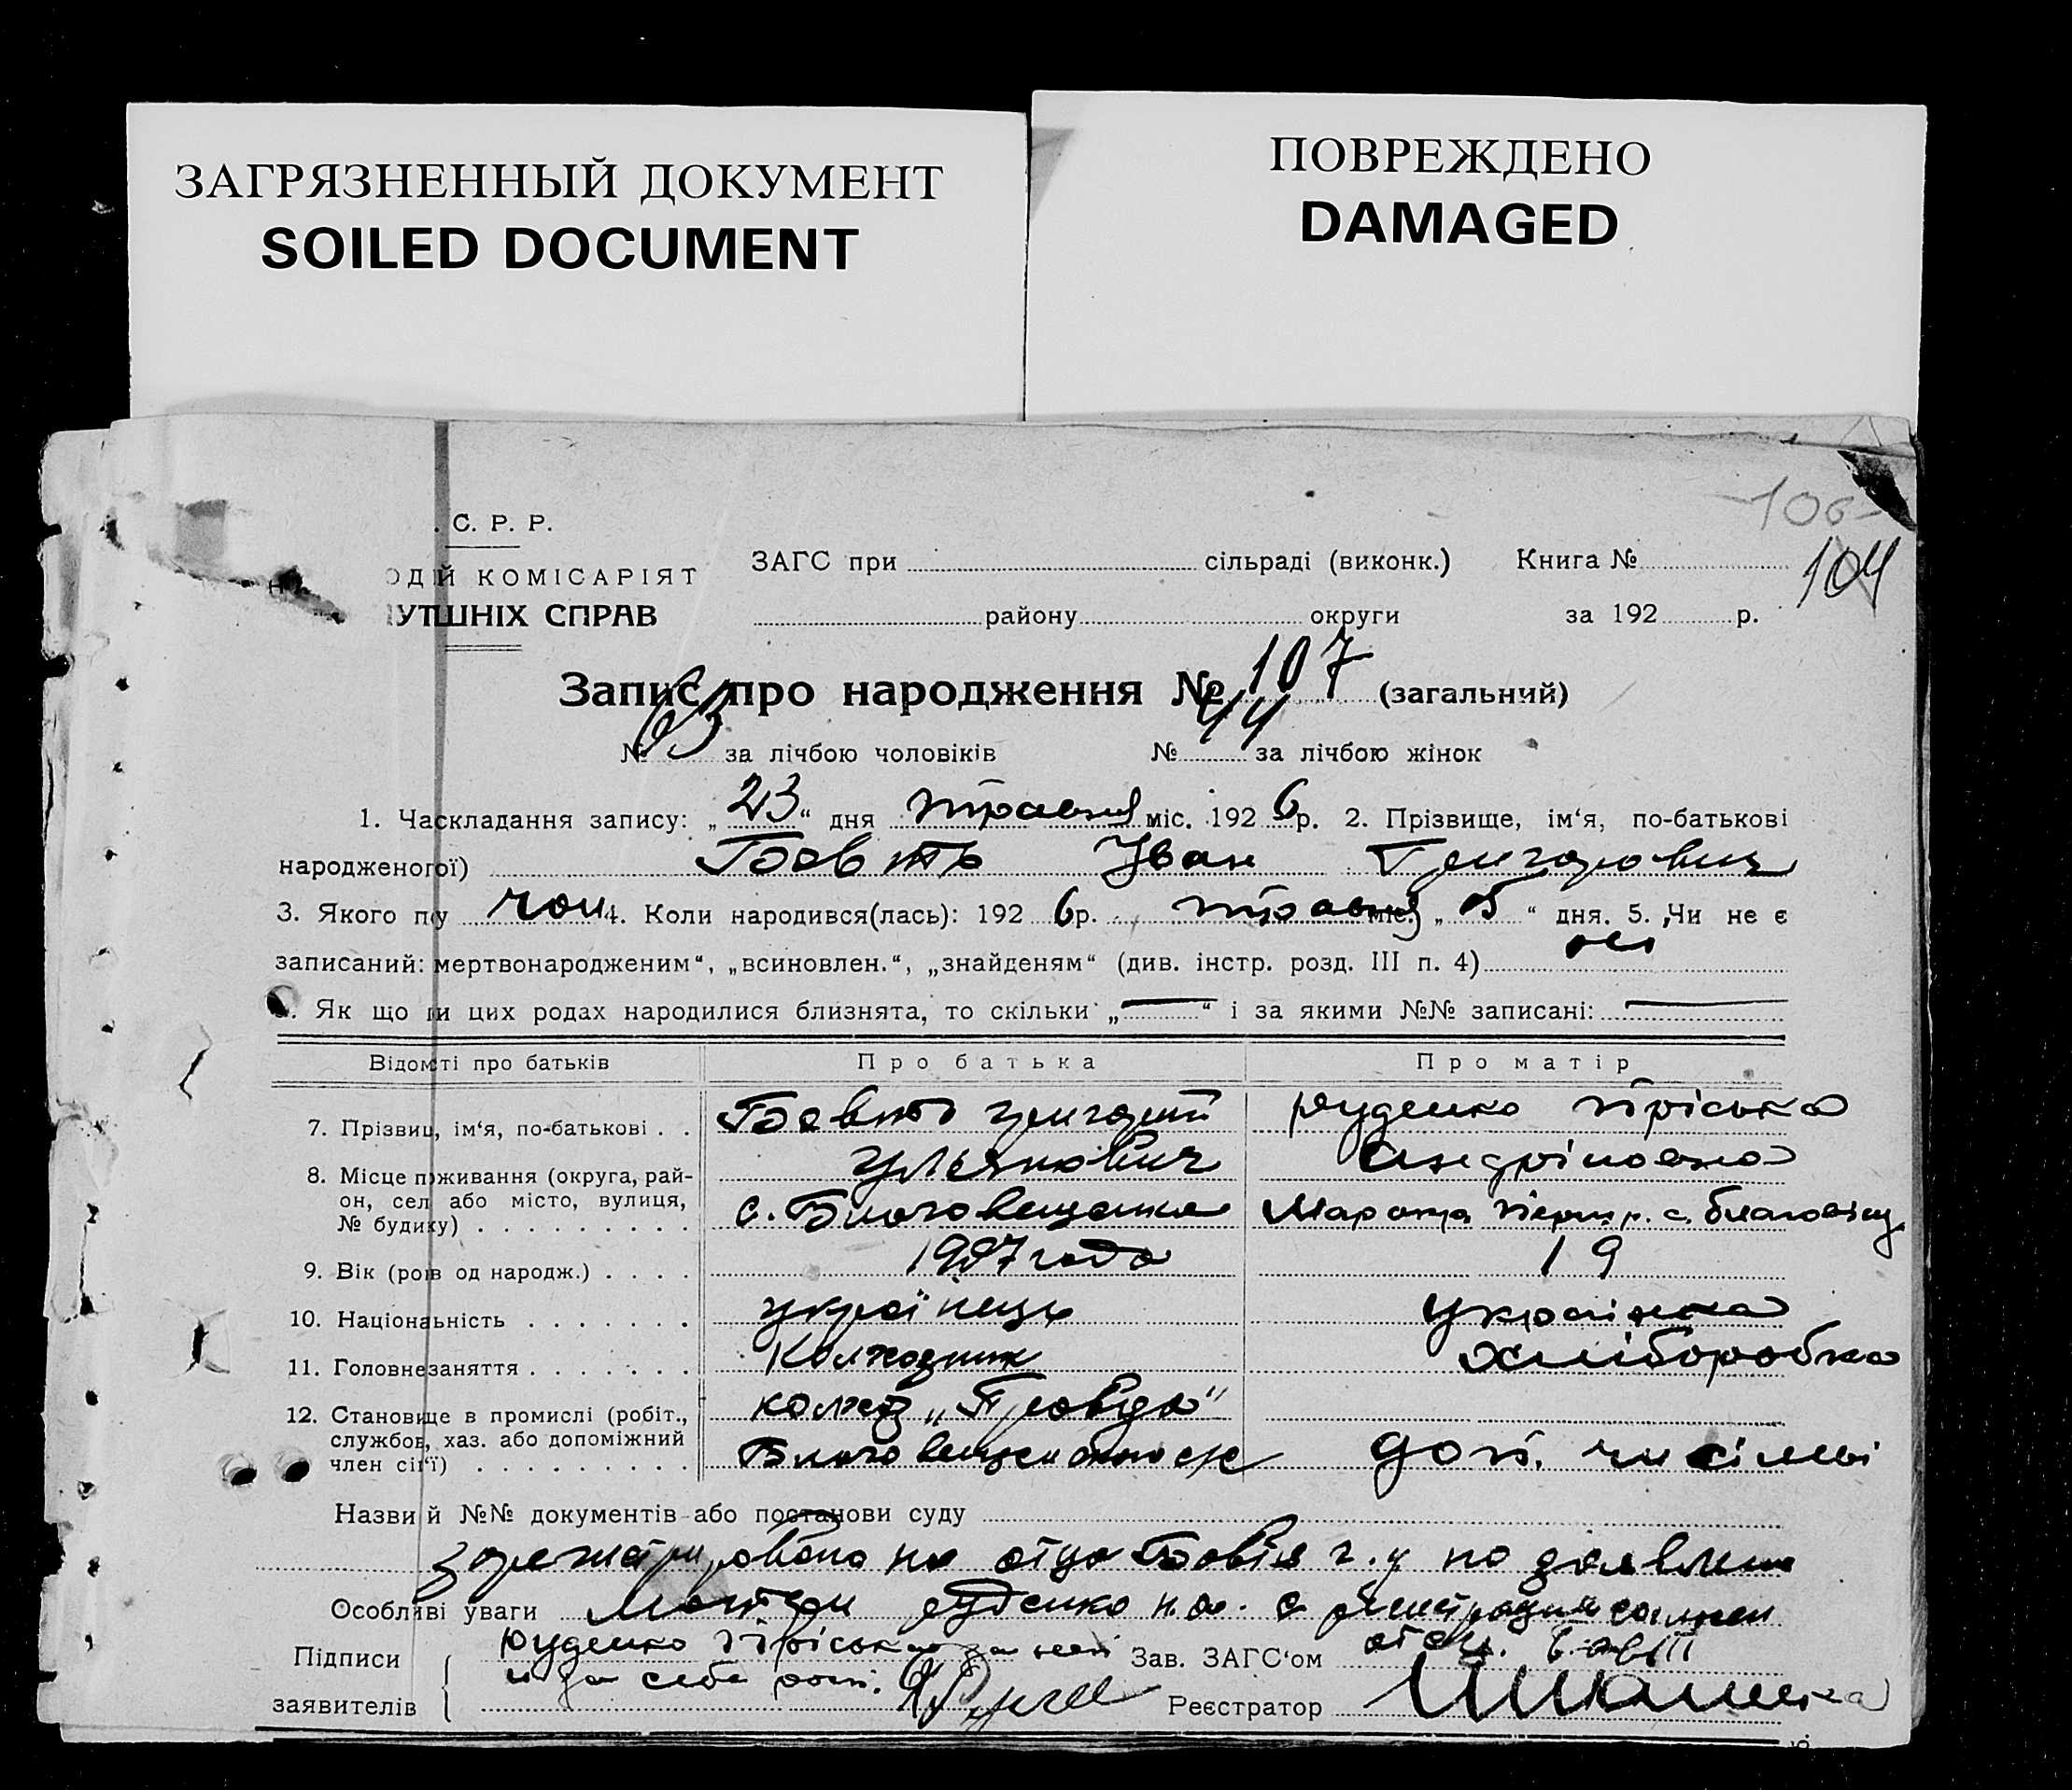 ЗАГРЯЗНЕННЫЙ ДОКУМЕНТ
SOILED DOCUMENT
ПОВРЕЖДЕНО
DAMAGED
106
104
. С. Р. Р.
ОДІЙ КОМІСАРІЯТ
УТШНІХ СПРАВ
ЗАГС при сільраді (виконк.) Книга №
району округи за 192 р.
Запис про народження № 107 (загальний)
№ 63 за лічбою чоловіків № 44 за лічбою жінок
1. Часкладання запису: „23“ дня травня міс. 1926 р. 2. Прізвище, ім‘я, по-батькові
народженогої) Іван Григорович
3. Якого пу чол 4. Коли народився(лась): 1926 р. травня міс. „15“ дня. 5. Чи не є
записаний: мертвонародженим“, „всиновлен.“, „знайденям“ (див. інстр. розд. III п. 4) ні
. Як що и цих родах народилися близнята, то скільки „—“ і за якими №№ записані: —
Відомті про батьків Про батька Про матір
7. Прізвищ, ім‘я, по-батькові . . Григорій Руденко Пріська
Улянович Андріановна
8. Місце пживання (округа, рай-
он, сел або місто, вулиця,
№ будику) с. Благовещенка с. Благовіщ.
9. Вік (роів од народж.) . . . . 1907 года 19
10. Націонаьність українець українка
11. Головнезаняття Колхозник Хліборобка
12. Становище в промислі (робіт.,
службов, хаз. або допоміжний
член сім‘ї) колхоз „Правда“
доп. чл сімьі
Назви й №№ документів або постанови суду
на отца г. у по заявлению
Особливі уваги Матери Руденко
Підписи Руденко Пріська за неї Зав. ЗАГС‘ом
заявителів и за себе Реєстратор